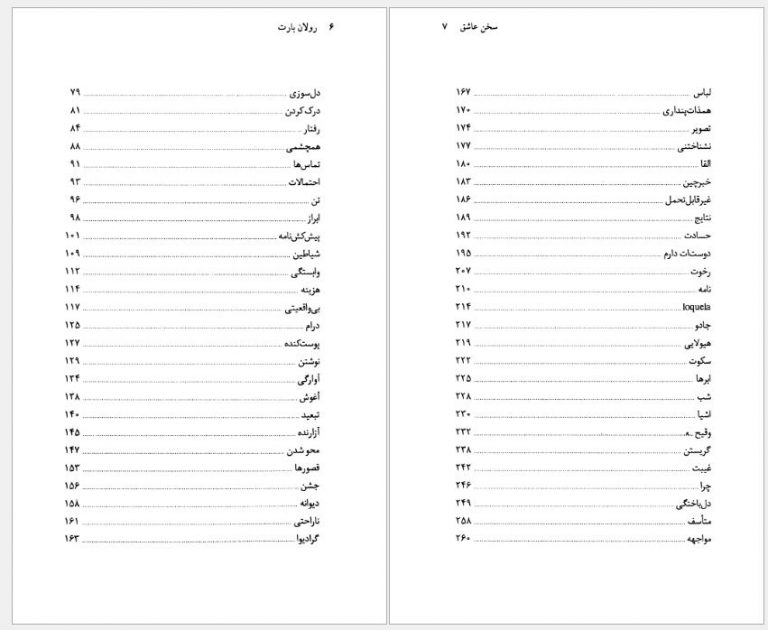 ۶ رولان بارت
دل‌سوزی ۷۹
درک‌کردن ۸۱
رفتار ۸۴
همچشمی ۸۸
تماس‌ها ۹۱
احتمالات ۹۳
تن ۹۶
ابراز ۹۸
پیش‌کش‌نامه ۱۰۱
شیاطین ۱۰۹
وابستگی ۱۱۲
هزینه ۱۱۴
بی‌واقعیتی ۱۱۷
درام ۱۲۵
پوست‌کنده ۱۲۷
نوشتن ۱۲۹
آوارگی ۱۳۴
آغوش ۱۳۸
تبعید ۱۴۰
آزارنده ۱۴۵
محو شدن ۱۴۷
قصورها ۱۵۳
جشن ۱۵۶
دیوانه ۱۵۸
ناراحتی ۱۶۱
گرادیوا ۱۶۳
سخن عاشق ۷
لباس ۱۶۷
همذات‌پنداری ۱۷۰
تصویر ۱۷۴
نشناختنی ۱۷۷
القا ۱۸۰
خبرچین ۱۸۳
غیرقابل‌تحمل ۱۸۶
نتایج ۱۸۹
حسادت ۱۹۲
دوستت دارم ۱۹۵
رخوت ۲۰۷
نامه ۲۱۰
loquela ۲۱۴
جادو ۲۱۷
هیولایی ۲۱۹
سکوت ۲۲۲
ابرها ۲۲۵
شب ۲۲۸
اشیا ۲۳۰
وقیح ۲۳۲
گریستن ۲۳۸
غیبت ۲۴۲
چرا ۲۴۶
دل‌باختگی ۲۴۹
متأسف ۲۵۸
مواجهه ۲۶۰